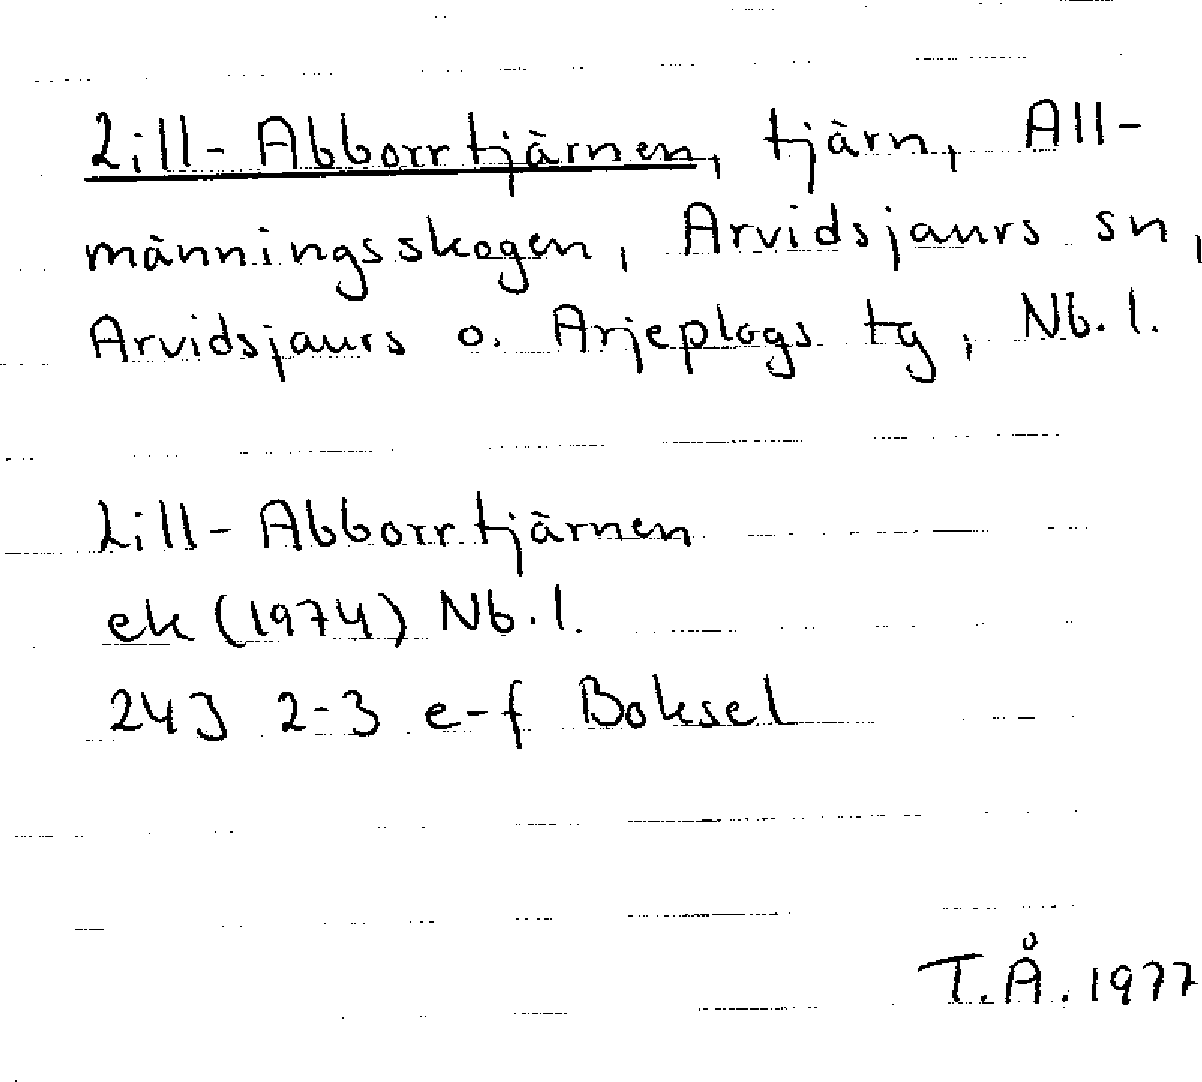 Lill-Abborrtjärnen, tjärn, All-
männingsskogen, Arvidsjaurs sn,
Arvidsjaurs o. Arjeplogs tg, Nb. l.
Lill-Abborrtjärnen
ek (1974) Nb. l.
24J 2-3 e-f Boksel
T.Å. 1977